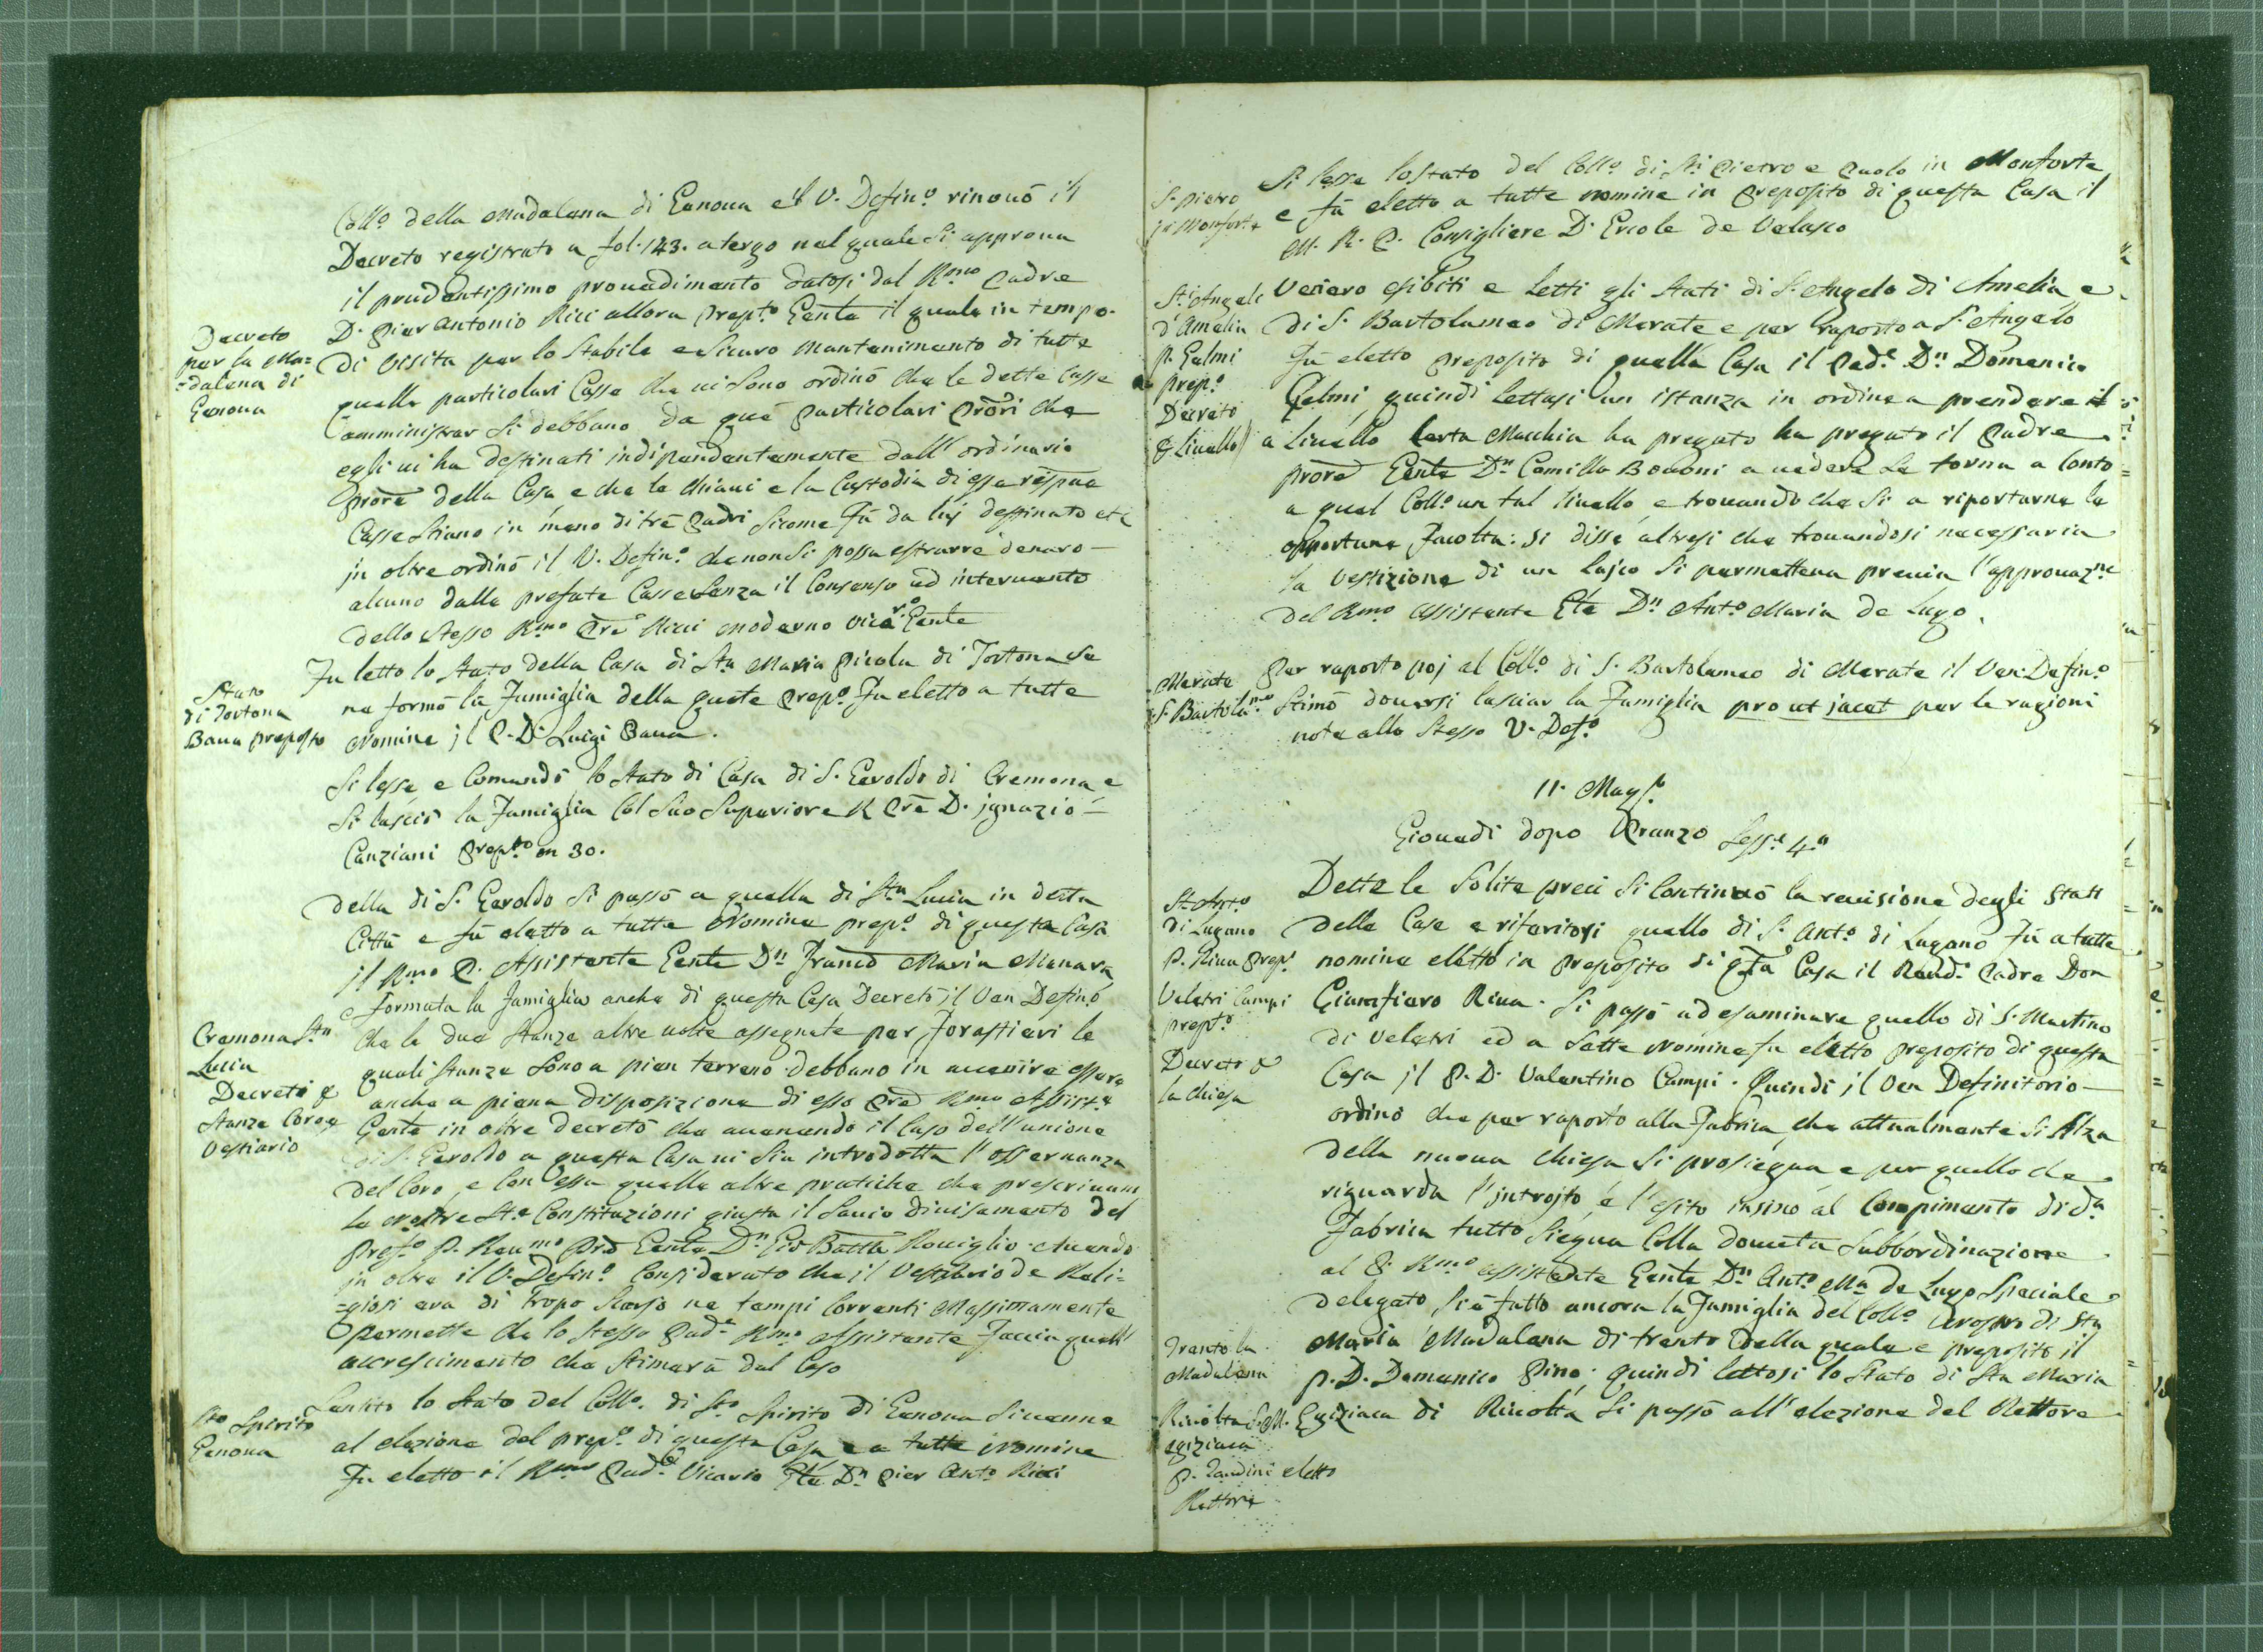 Coll.o della Madalena di Genoua e'l V. Defin.o rinouò il
Decreto registrato a fol. 143. a tergo nel quale si approua
il prudentissimo prouedimento datosi dal Rmo Padre
D. Pier Antonio Ricci allora Prep.to Genle il quale in tempo
di Visita per lo Stabile e Sicuro Mantenimento di tutte
quelle particolari Casse che ui sono ordinò che le dette Casse
amministrar si debbano da que particolari Prori che
egli ui ha destinati indipendentemente dall'ordinario
Prore della Casa e che le chiaui e la Custodia di esse
Casse stiano in mano di trè Padri sicome fù da luj destinato etc
jn oltre ordinò il V. Defin.o che non si possa estrarre denaro
alcuno dalle prefate Casse senza il Consenso ed interuento
dello Stesso Rmo Pre Ricci Moderno Vica.rio Genle
Decreto
per la Ma=
=dalena di
Genoua
Fu letto lo stato della Casa di Sta Maria Picola di Tortona se
ne formò la Famiglia della quale Prep.o Fu eletto a tutte
Nomine jl P. D. Luigi Baua.
Stato
di Tortona
Baua preposto
Si lesse e Comendò lo stato di Casa di S. Geroldo di Cremona e
si lasciò la Famiglia Col suo Superiore Pre D. jgnazio
Canziani Prep.to
della di S. Geroldo si passò a quella di Sta Lucia in detta
Città e fù eletto a tutte Nomine prep.o di questa Casa
il Rmo P. Assistente Genle Dn Franco Maria Manara
e formata la famiglia anche di questa Casa Decretò il Ven Defino
che le due stanze altre uolte assegnate per Forastieri le
quali stanze sono a pian terreno debbano in auenire essere
anche a piena disposizione di esso Pre Rmo Assist.e
Genle in oltre decretò che auenendo il Caso dell'unione
di S. Geroldo a questa Casa ui sia introdotta l'osseruanza
del Coro, e Con essa quelle altre pratiche che prescriuono
le nostre Ste Constituzioni giusta il Sauio diuisamento del
Pref.o P. Reu.mo Genle Dn Gio Batta Rouiglio Auendo
in oltre il V. Defin.o Considerato che il Vestiario de Reli=
=giosi era di tropo scarso ne tempi Correnti Massimamente
permette che lo stesso Pad.e Rmo Assistente Faccia quell'
accrescimento che stimarà dal Caso
Cremona Sta
Lucia
Decreti p
Stanze Coro e
Vestiario
Sentito lo stato del Coll.o di Sto Spirito di Genoua si uenne
al elezione del prep.o di questa Casa e a tutte Nomine
Fu eletto il Rmo Pad.e Vicario Gle Dn Pier Ant.o Ricci
Sto Spirito
Genoua
Si lesse lo stato del Coll.o di Sti Pietro e Paolo in Monforte
e fù eletto a tutte nomine in Preposito di questa Casa il
M. R. P. Consigliere D. Ercole de Velasco
S. Pietro
jn Monforte
Venero esibiti e Letti gli stati di S. Angelo di Amelia e
di S. Bartolameo di Merate e per raporto a S. Angelo
fù eletto Preposito di quella Casa il Pad.e Dn Domenico
Gelmi, quindi lettasi un istanza in ordine a prendere il
a liuello Certa Macchia ha pregato ha pregato il Padre
Prore Genle Dn Camillo Bouoni a uedere se torna a Conto
a quel Coll.o un tal liuello, e trouando che si a riportarne le
opportune Facoltà: si disse altresi che trouandosi necessaria
la Vestizione di un Lajco si permetteua preuia l'approuaz.ne
del Rmo Assistente Gle Dn Ant.o Maria de Lugo.
St Angelo
d'Amelia
P. Gelmi
Prep.o
Decreto
p liuello
Per raporto poj al Coll.o di S. Bartolameo di Merate il Ven. Defin.o
stimò douersi lasciar la Famiglia pro ut jacet per le ragioni
note allo Stesso V. Def.o
Merate
S. Bartolam.eo
11. Mag.o
Giouedi dopo Pranzo Sess.e 4.a
Dette le Solite preci si Continuò la reuisione degli Stati
delle Case e riferitosi quello di S. Ant.o di Lugano Fù a tutte
nomine eletto in Preposito di qta Casa il Reud.o Padre Don
Gianpiero Riua. Si passò ad esaminare quello di S. Martino
di Veletri ed a Sette Nomine fu eletto preposito di questa
Casa jl P. D. Valentino Campi. Quindi jl Ven Definitorio
ordinò che per raporto alla Fabrica, che attualmente si Alza
della nuoua chiesa si prosiegua e per quello che
riguarda l'jntrojto, e l'esito insino al Compimento di da
Fabrica tutto siegua Colla douuta Subbordinazione
al P. Rmo assistente Genle Dn Ant.o Ma de Lugo Speciale
delegato, si è fatto ancora la Famiglia del Coll.o di Sta
Maria Madalena di trento della quale e preposito il
P. D. Domenico Pino; quindi lettosi lo stato di Sta Maria
Egiziaca di Riuolta si passò all'elezione del Rettore
St Ant.o
di Lugano
P. Riua Prep.o
Veletri Campi
prep.to
Decreto p
la chiesa
Trento la
Madalena
Riuolta S. M.
egiziaca
P. eletto
Rettore